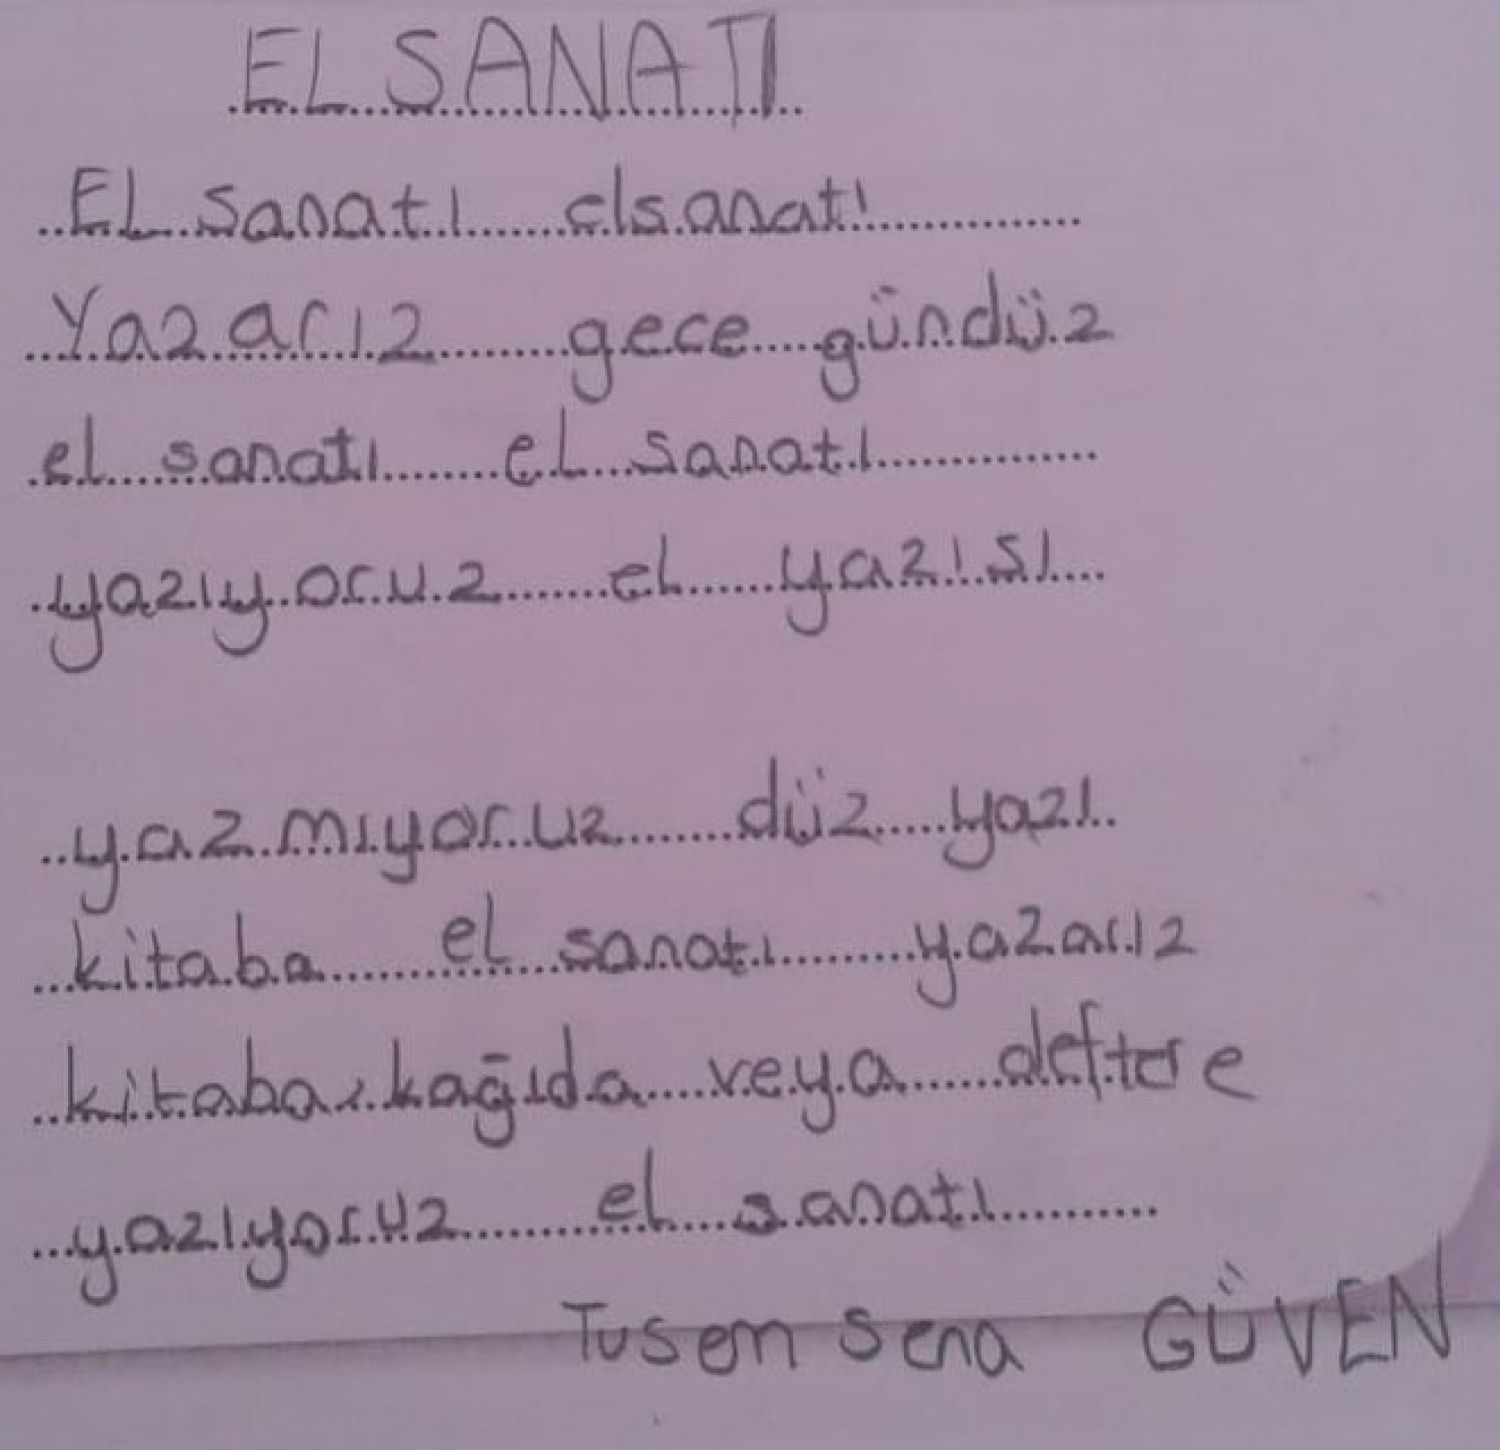 EL SANATI
EL sanatı elsanatı
Yazarız gece gündüz
el sanatı el sanatı
yazıyoruz el yazısı
yazmıyoruz düz yazı
kitaba el sanatı yazarız
kitaba, kağıda veya deftere
yazıyoruz el sanatı
Tusem Sena GÜVEN